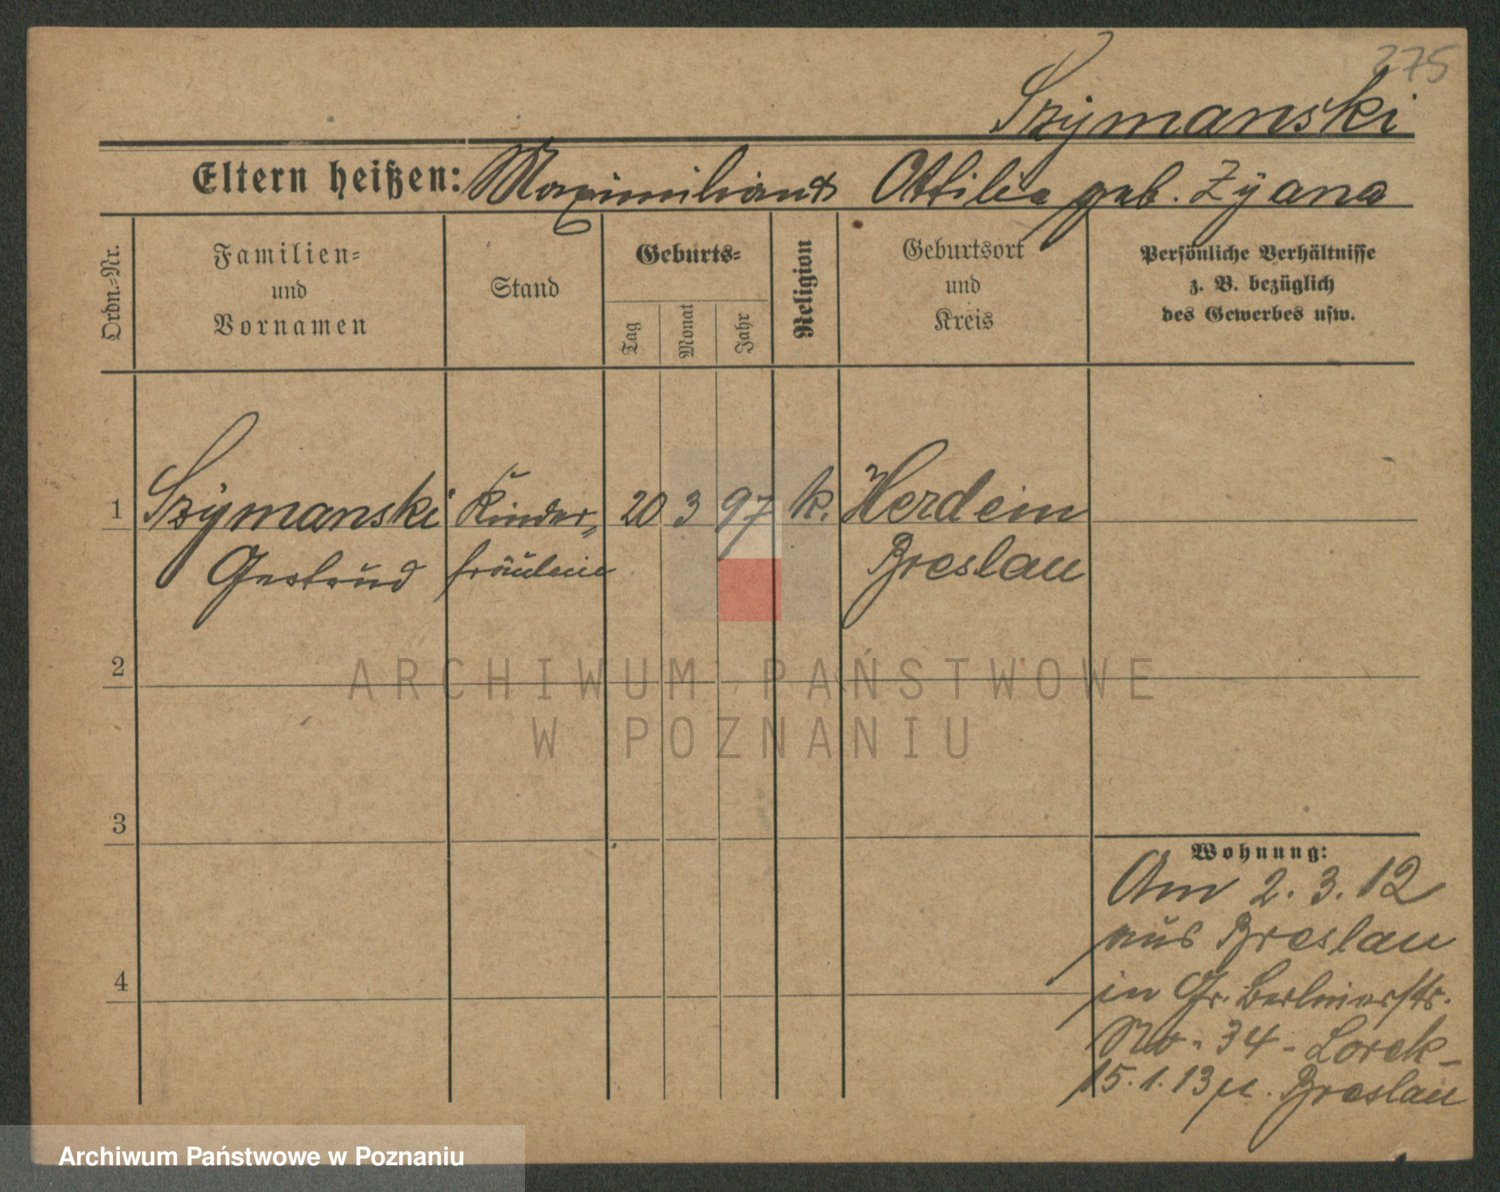 275
Szymanski
Eltern heißen: Maximilian & Ottilie geb. Zyana
Ordn.-Nr.
Familien-
und
Vornamen
Stand
Geburts-
Tag
Monat
Jahr
Religion
Geburtsort
und
Kreis
Persönliche Verhältnisse
z. B. bezüglich
des Gewerbes usw.
1 Szymanski Kinder- 20 3 97 k. Herdein
Gertrud fräulein Breslau
2
3
4
Wohnung:
Am 2. 3. 12
aus Breslau
in Gr. Berlinerstr.
No. 34 - Lorek -
15. 1. 13 n. Breslau
ARCHIWUM PAŃSTWOWE
W POZNANIU
Archiwum Państwowe w Poznaniu